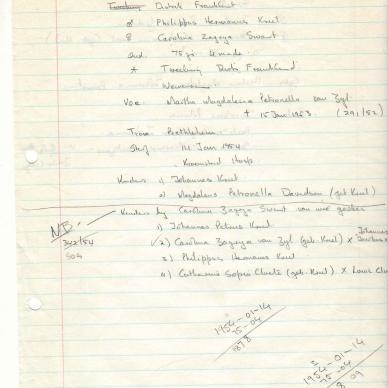 Tweeling Distrik Frankfort
♂ Philippus Hermanus Knel
♀ Carolina Zagrya Swart
oud 75 jr 4 mnde
* Tweeling Distr Frankfort
Wewenaar
Vroe Martha Magdalena Petronella van Zyl
+ 15 Jan 1953 (291/52)
Trou Bethlehem
Sterf 14 Jan 1954
Kroonstad Hosp
Kinders 1) Johannes Knel
2) Magdalena Petronella Davidson (geb Knel)
NB.
Kinders by Carolina Zagrya Swart van
342/54
SOG
1) Johannes Petrus Knel
2) Carolina Zagrya van Zyl (geb. Knel) x Johannes
3) Philippus Hermanus Knel
4) Catharina Sophia Cloete (geb. Knel) x Louw
1954-01-14
75-04
1878
1954-01-14
75-04
09